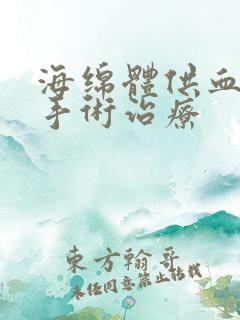 海绵體供血
手術治療
東方翰哥
未经同意禁止转载